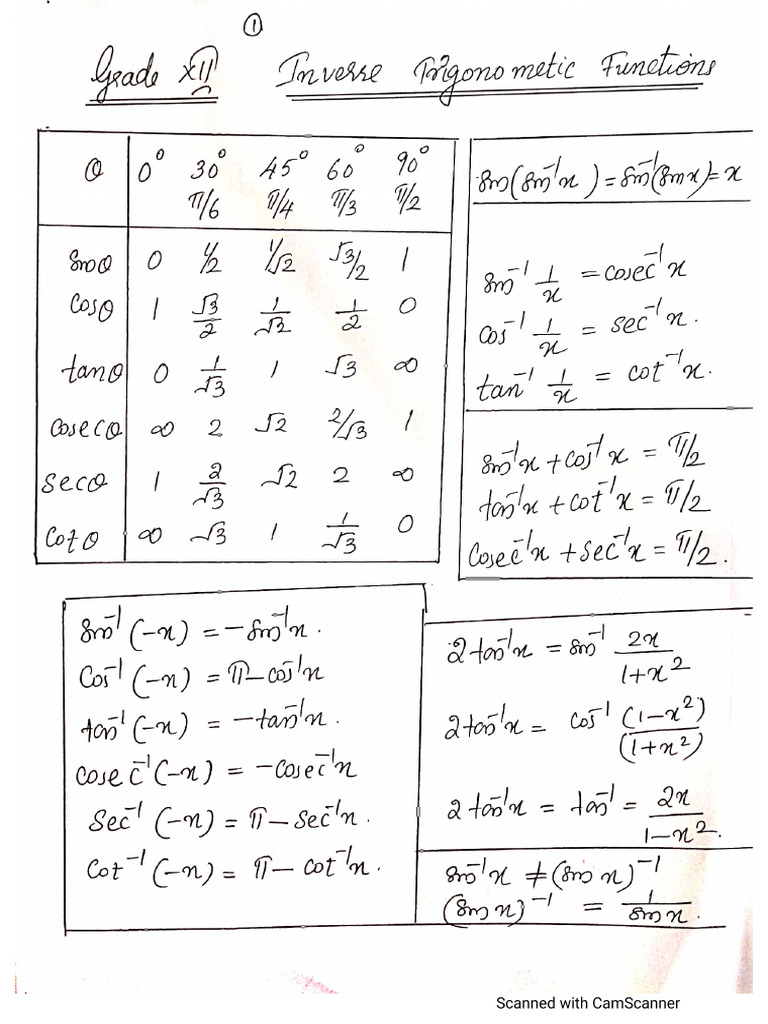 ①
Grade XII Inverse Trigonometic Functions
θ 0° 30° 45° 60° 90°
π/6 π/4 π/3 π/2
sinθ 0 1/2 1/√2 √3/2 1
cosθ 1 √3/2 1/√2 1/2 0
tanθ 0 1/√3 1 √3 ∞
cosecθ ∞ 2 √2 2/√3 1
secθ 1 2/√3 √2 2 ∞
cotθ ∞ √3 1 1/√3 0
sin(sin⁻¹x) = sin⁻¹(sinx) = x
sin⁻¹ 1/x = cosec⁻¹x
cos⁻¹ 1/x = sec⁻¹x.
tan⁻¹ 1/x = cot⁻¹x.
sin⁻¹x + cos⁻¹x = π/2
tan⁻¹x + cot⁻¹x = π/2
cosec⁻¹x + sec⁻¹x = π/2.
sin⁻¹(-x) = -sin⁻¹x.
cos⁻¹(-x) = π - cos⁻¹x
tan⁻¹(-x) = -tan⁻¹x.
cosec⁻¹(-x) = -cosec⁻¹x
sec⁻¹(-x) = π - sec⁻¹x.
cot⁻¹(-x) = π - cot⁻¹x.
2tan⁻¹x = sin⁻¹ 2x/1+x²
2tan⁻¹x = cos⁻¹ (1-x²)/(1+x²)
2tan⁻¹x = tan⁻¹ = 2x/1-x².
sin⁻¹x ≠ (sin x)⁻¹
(sin x)⁻¹ = 1/sin x.
Scanned with CamScanner